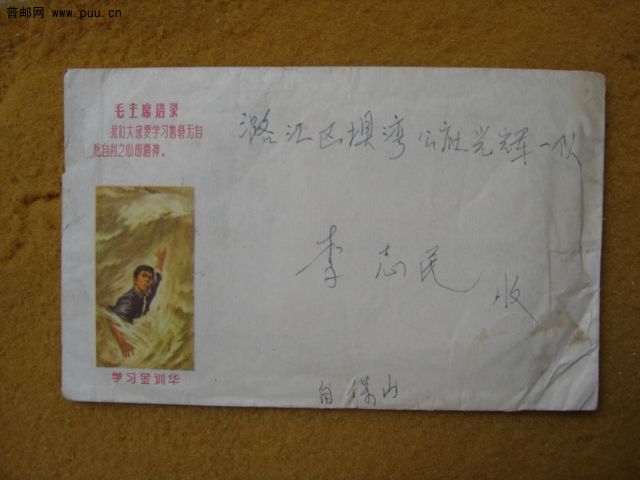 普邮网 www.puu.cn
毛主席语录
我们大家要学习他毫无自
私自利之心的精神。
潞江区坝湾公社光辉一队
李志民 收
学习金训华
自保山